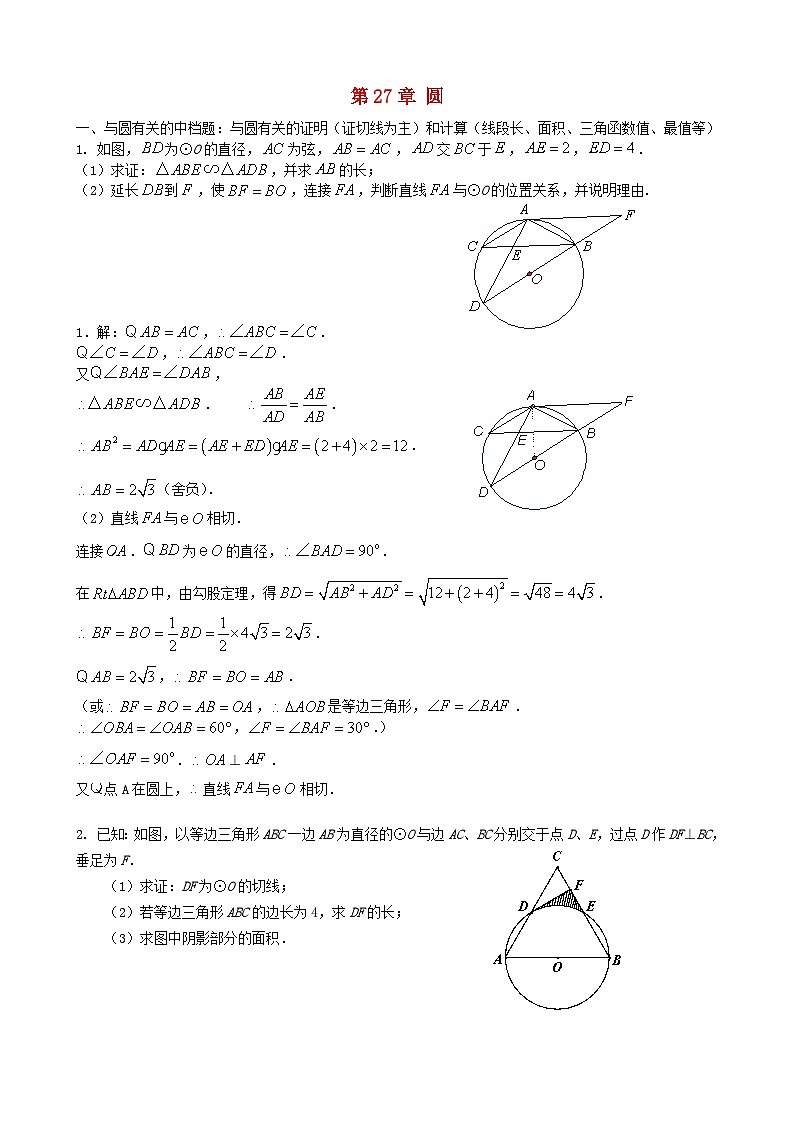 第27章 圆
一、与圆有关的中档题：与圆有关的证明（证切线为主）和计算（线段长、面积、三角函数值、最值等）
1. 如图，BD为⊙O的直径，AC为弦，AB＝AC，AD交BC于E，AE＝2，ED＝4．
（1）求证：△ABE∽△ADB，并求AB的长；
（2）延长DB到F，使BF＝BO，连接FA，判断直线FA与⊙O的位置关系，并说明理由．
A
F
C
E
B
O
D
1．解：Q AB＝AC，∴∠ABC＝∠C．
Q∠C＝∠D，∴∠ABC＝∠D．
又Q∠BAE＝∠DAB，
∴△ABE∽△ADB． ∴ AB/AD＝AE/AB．
∴ AB²＝ADgAE＝(AE＋ED)gAE＝(2＋4)×2＝12．
∴ AB＝2√3（舍负）．
A
F
C
E
B
O
D
（2）直线FA与e O相切．
连接OA．Q BD为e O的直径，∴∠BAD＝90°．
在Rt△ABD中，由勾股定理，得BD＝√(AB²＋AD²)＝√(12＋(2＋4)²)＝√48＝4√3．
∴ BF＝BO＝1/2BD＝1/2×4√3＝2√3．
Q AB＝2√3，∴ BF＝BO＝AB．
（或∴ BF＝BO＝AB＝OA，∴ △AOB是等边三角形，∠F＝∠BAF．
∴∠OBA＝∠OAB＝60°，∠F＝∠BAF＝30°．）
∴∠OAF＝90°．∴ OA⊥AF．
又Q点A在圆上，∴直线FA与e O相切．
2. 已知：如图，以等边三角形ABC一边AB为直径的⊙O与边AC、BC分别交于点D、E，过点D作DF⊥BC，
垂足为F．
（1）求证：DF为⊙O的切线；
（2）若等边三角形ABC的边长为4，求DF的长；
（3）求图中阴影部分的面积．
C
F
D
E
A
O
B